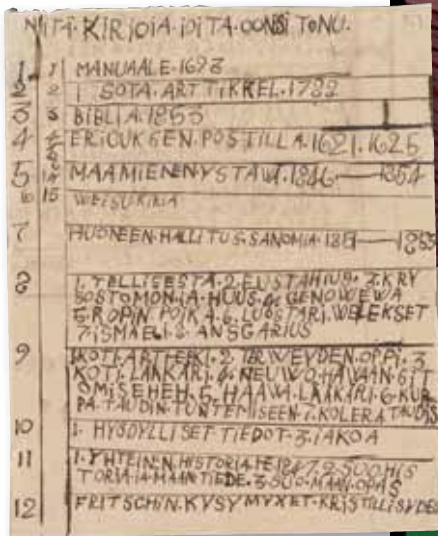 NIITÄ. KIRIOIA. IOITA. OONSITONU.
1. 1 MANUAALE. 1693
2 2 1 SOTA. ARTTIKKEL. 1782
3 3 BIBLIA. 1853
4 4 ERICUKSEN. POSTILLA. 1621. 1625
5 14 MAAMIENENYSTAWA. 1846 — 1854
6 15 WEISUKIRIA
7 HUONEEN. HALLITUS. SANOMIA. 1853
8 1. TELLISESTA. 2. EUSTAHIUS. 3. KRY
SOSTOMON. IA. HUUS. 4. GENOWEWA
5. ROPIN POIKA. 6. LUOSTARI. WELEKSET
7. ISMAEL. 8. ANSGARIUS
9 1. KOTI. ARTTEEKI. 2. TERWEYDEN. OPPI. 3
KOTI. LÄÄKARI. 4. NEUWO. HAWAAN. SIT
OMISEHEN. 5. HAAWA. LÄÄKARI. 6. KUP
PA. TAUDIN. TUNTEMISEEN. 7. KOLERA TAUDIS
10 1. HYÖDYLLISET TIEDOT. 3. IAKOA
11 1. YHTEINEN. HISTORIA. 1847. 2. SUO. HIS
TORIA. IA. MAAN TIEDE. 3. SUO. MAAN. OPAS
12 FRITSCHIN. KYSYMYXET. KRISTILLISYDES